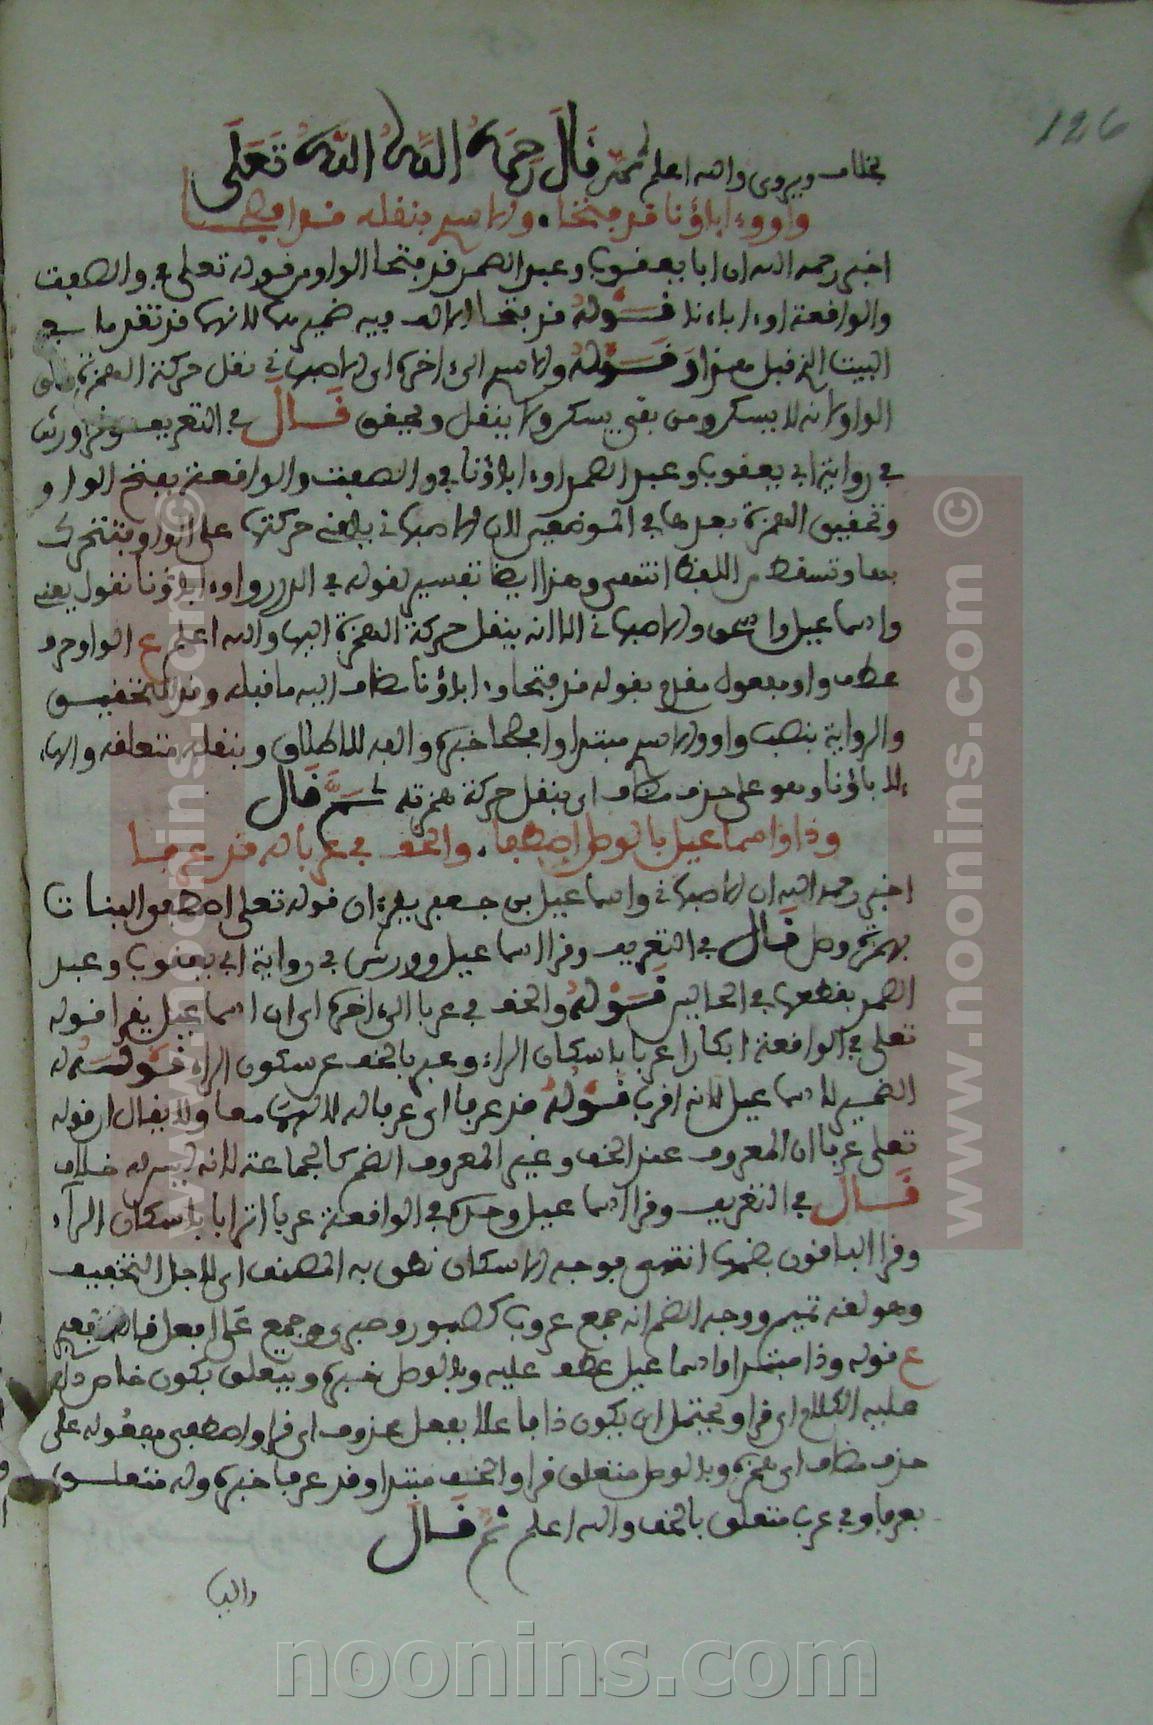 126
بخلاف ويروى والله اعلم ثم قال رحمه الله تعلى
واوو ءاباؤنا قد فتحا والاسم بنقله قد
اخبر رحمه الله ان ابا يعقوب وعبد الصمد فتحا الواو من قوله تعلى في والصفت
والواقعة اوءاباءنا قوله قد فتحا الالف فيه ضمير لانهما قد تقدما في
البيت الذ قبل هذا وقوله والاسم الى اخره اى الاصبهاني نقل حركة الهمزة
الواو لانه لا يسكن ومن بقي يسكن ولا ينقل ويحقق قال في التعريف وقرا ورش
في رواية ابي يعقوب وعبد الصمد اوءاباؤنا في والصفت والواقعة بفتح الواو
وتحقيق الهمزة بعدها في الموضعين الا ان الاصبهاني يلقي حركتها على الواو فتتحرك
بها وتسقط من اللفظ انتهى وهذا ايضا تفسير لقوله في الدرر واوءاباؤنا نقول يعني
واسماعيل واسحق والاصبهاني الا انه ينقل حركة الهمزة اليها والله اعلم ع الواو حرف
عطف واو مفعول مقدم بقوله قد فتحا وءاباؤنا مضاف اليه ما قبله وقد للتحقيق
والرواية بنصب واو والاسم مبتدا خبره والفه للاطلاق وبنقله متعلقه والهاء
لاباؤنا وهو على حذف مضاف اى بنقل حركة همزته ثم قال
وذا واسماعيل بالوصل اصطفى والخف في عربا له قد عرفا
اخبر رحمه الله ان الاصبهاني واسماعيل بن جعفر يقرءان قوله تعلى اصطفى البنات
بهمزة وصل قال في التعريف وقرا اسماعيل وورش في رواية ابي يعقوب وعبد
الصمد بقطعها في الحالين قوله والخف في عربا الى اخره اى ان اسماعيل يقرا قوله
تعلى في الواقعة ابكارا عربا باسكان الراء وعبر بالخف عن سكون الراء قوله له
الضمير لاسماعيل لانه اقرب قوله قد عرفا اى عرفا له لا لهما معا ولا يقال ان قوله
تعلى عربا ان المعروف عند الخف وغير المعروف الضم كالجماعة لانه ليس له خلاف
قال في التعريف وقرا اسماعيل وحده في الواقعة عربا اترابا باسكان الراء
وقرا الباقون بضمها انتهى فوجه الاسكان نطق به المصنف اى لاجل التخفيف
وهو لغة تميم ووجه الضم انه جمع عروب كصبور وصبر وجمع على افعل
ع قوله وذا مبتدا واسماعيل عطف عليه وبالوصل خبره ويتعلق بكون خاص دل
عليه الكلام اى قرا ويحتمل ان يكون ذا فاعلا بفعل محذوف اى قرا واصطفى مفعوله على
حذف مضاف اى همزة وبالوصل متعلق قرا والخف مبتدا وقد عرفا خبره وله متعلق
بعرفا وفي عربا متعلق بالخف والله اعلم ثم قال
www.noonins.com ©
www.noonins.com ©
noonins.com